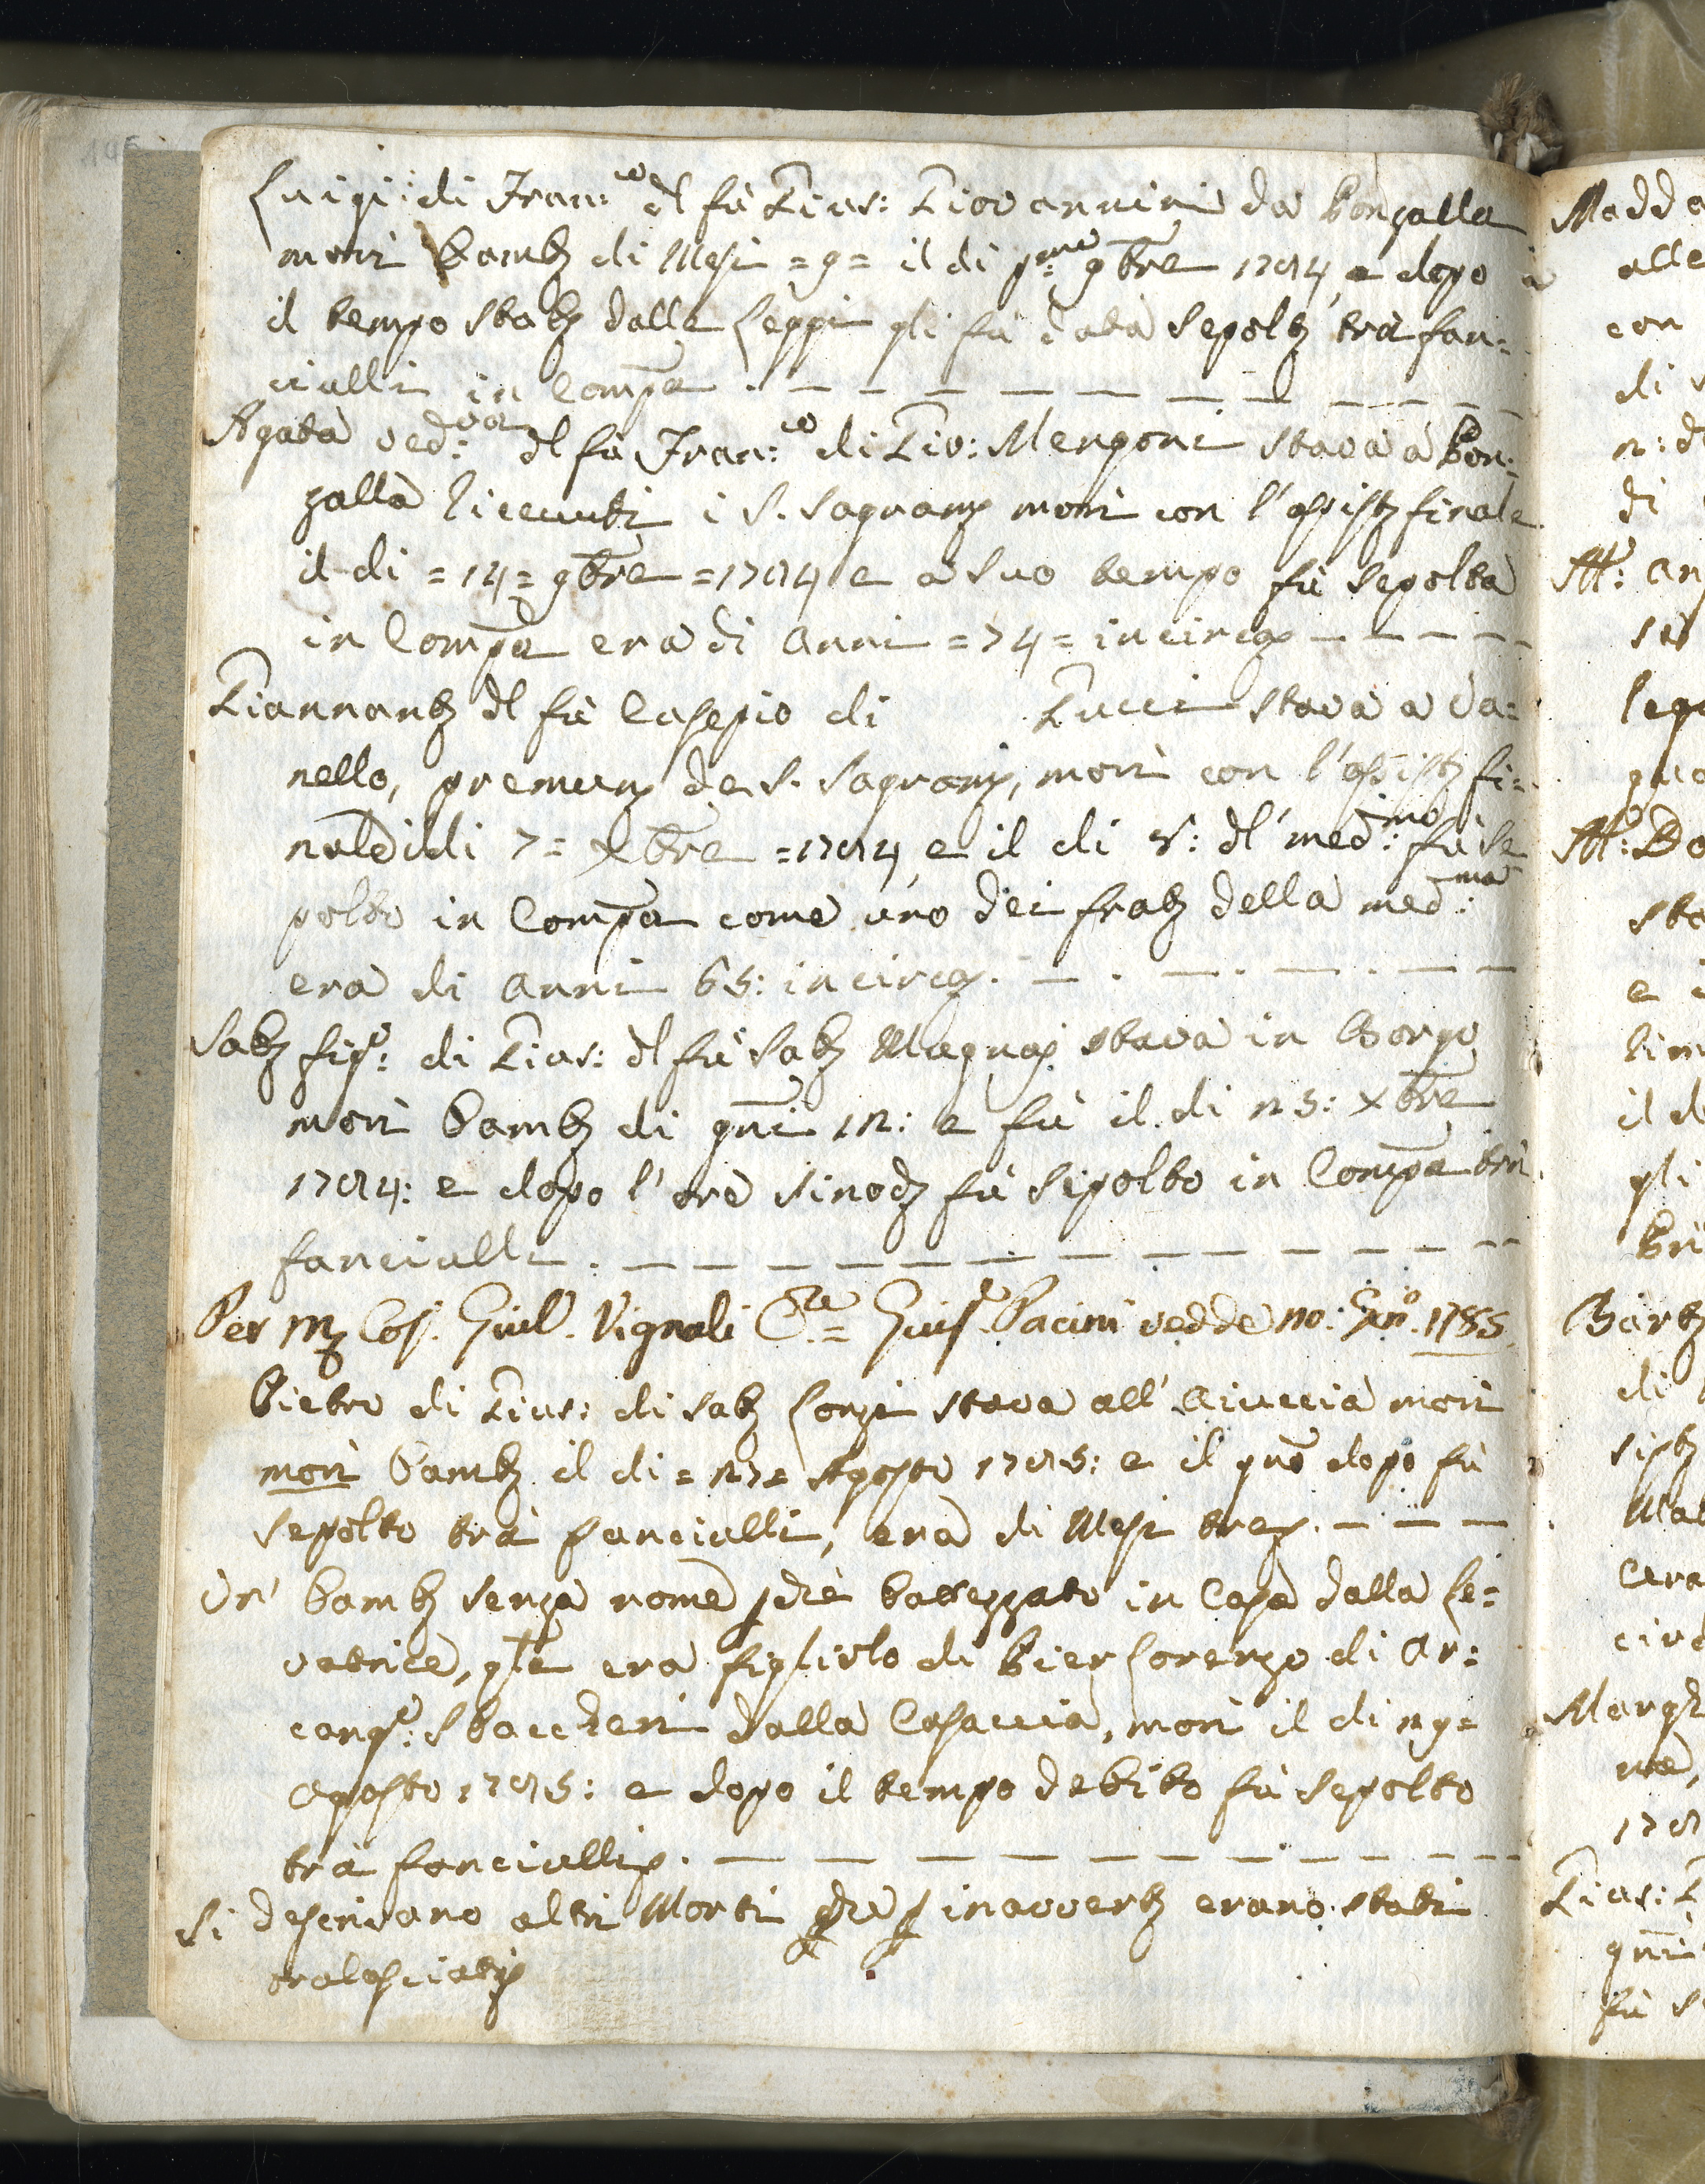 Luigi: di Fran:co dl fù Gius: Giovannini da Bonzalla
morì bamb:o di Mesi = 9 = il di p:mo 9bre 1784, e dopo
il tempo stab:o dalle Leggi gli fù data sepolt:a trà fan=
ciulli in Comp:a . — — — — — — — — —
Agata ved:va dl fù Fran:co di Gio: Mengoni stava à Bon=
zalla riceuti i S. Sagram:ti morì con l'assist:a finale
il di = 14 = 9bre = 1784 e a suo tempo fù sepolta
in Comp:a era di anni = 74 = in circa — — — —
Giannant:o dl fù Casepio di Gucci stava a Va=
nello, premun:o de S. Sagram:ti, morì con l'assist:a fi=
nale il di 7 = Xbre = 1784, e il di 8: dl' med:mo fù se
polto in Comp:a come uno dei frat:li della med:ma
era di anni 65: in circa . — . — . — . — —
Sab:o fig:o di Gius: dl fù Sab:o Magnaj stava in Borgo
morì bamb:o di gni 12: e fù il di 25: Xbre
1784: e dopo l'ore sinod:i fù sepolto in Comp:a trà
fanciulli . — — — — — — — — — — — —
Per M: Cos. Giul. Vignali C.re = Guis.e Pacini vedde 110: Gen.o 1785.
Pietro di Gius: di Sab:o Lonzi stava all' Aiuccia morì
morì bamb:o il di = 27 = Agosto 1785: e il gno dopo fù
sepolto trà fanciulli, era di Mesi tre . — — —
Un' bamb:o senza nome pchè battezzato in Casa dalla le=
vatrice, qle era figliolo di Pier Lorenzo di Ar=
cang:o Sbaccheri dalla Casaccia, morì il di 29 =
Agosto 1785: e dopo il tempo debito fù sepolto
trà fanciulli . — — — — — — — — — — —
Si descrivano altri Morti che p inavvert:a erano stati
tralasciati